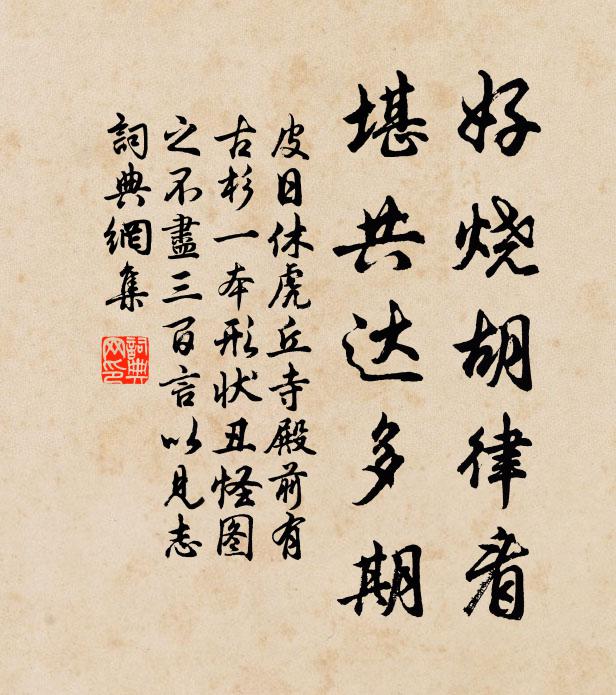 好烧胡律看
堪共达多期
皮日休虎丘寺殿前有
古杉一本形状丑怪图
之不盡三百言以见志
詞典網集
詞典
网印